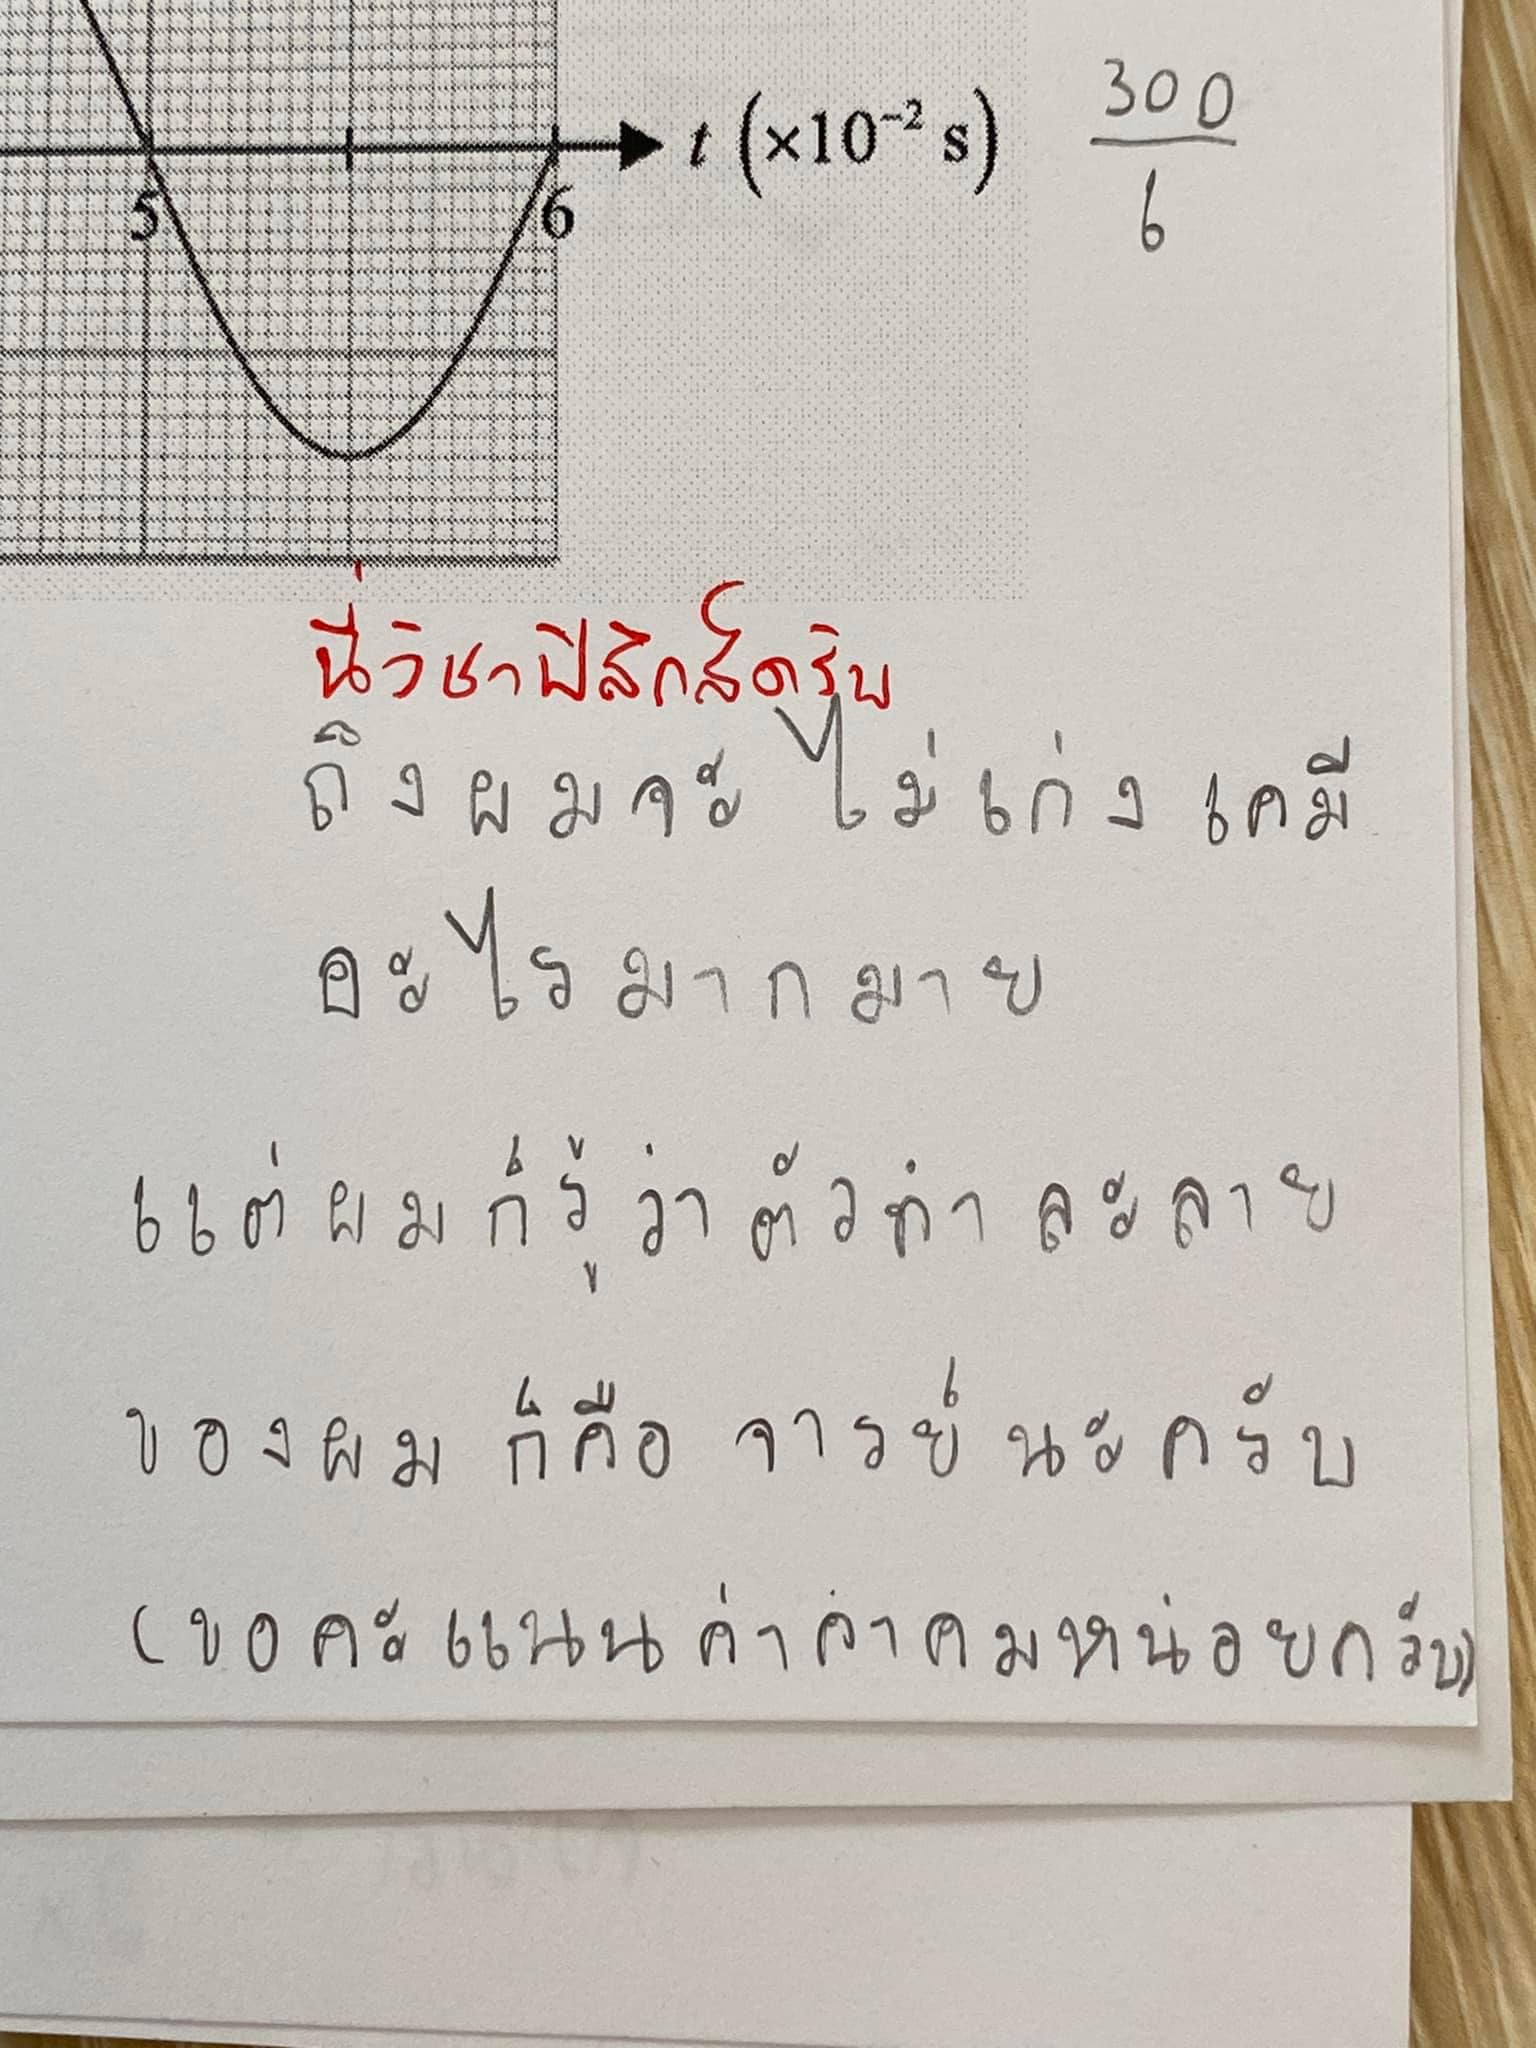 t (×10⁻² s)
300
6
5
6
นี่วิชาฟิสิกส์ครับ
ถึงผมจะไม่เก่งเคมี
อะไรมากมาย
แต่ผมก็รู้ว่าตัวทำละลาย
ของผม ก็คือ จารย์นะครับ
(ขอคะแนนค่าคาคมหน่อยครับ)